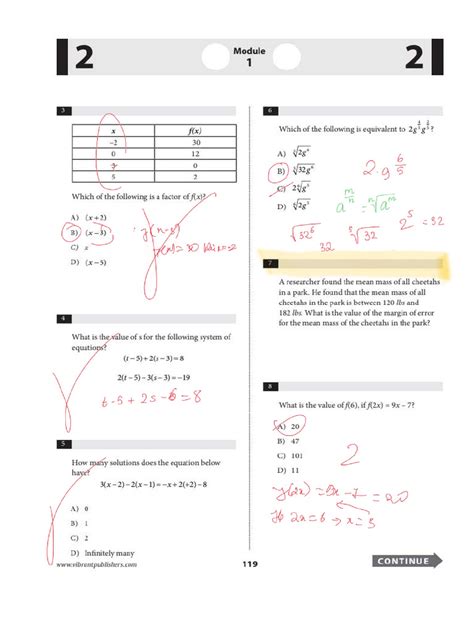 2
Module
1
2
3
x f(x)
–2 30
0 12
3 0
5 2
Which of the following is a factor of f(x)?
A) (x + 2)
B) (x – 3)
C) x
D) (x – 5)
4
What is the value of s for the following system of
equations?
(t – 5) + 2(s – 3) = 8
2(t – 5) – 3(s – 3) = –19
t - 5 + 2s - 6 = 8
5
How many solutions does the equation below
have?
3(x – 2) – 2(x – 1) = –x + 2(+2) – 8
A) 0
B) 1
C) 2
D) Infinitely many
www.vibrantpublishers.com
6
Which of the following is equivalent to
2·g 6/5
32
2⁵ = 32
7
A researcher found the mean mass of all cheetahs
in a park. He found that the mean mass of all
cheetahs in the park is between 120 lbs and
182 lbs. What is the value of the margin of error
for the mean mass of the cheetahs in the park?
8
What is the value of f(6), if f(2x) = 9x – 7?
A) 20
B) 47
C) 101
D) 11
2
f(2x) = 9x - 7 = 20
2x = 6 → x = 3
119
CONTINUE